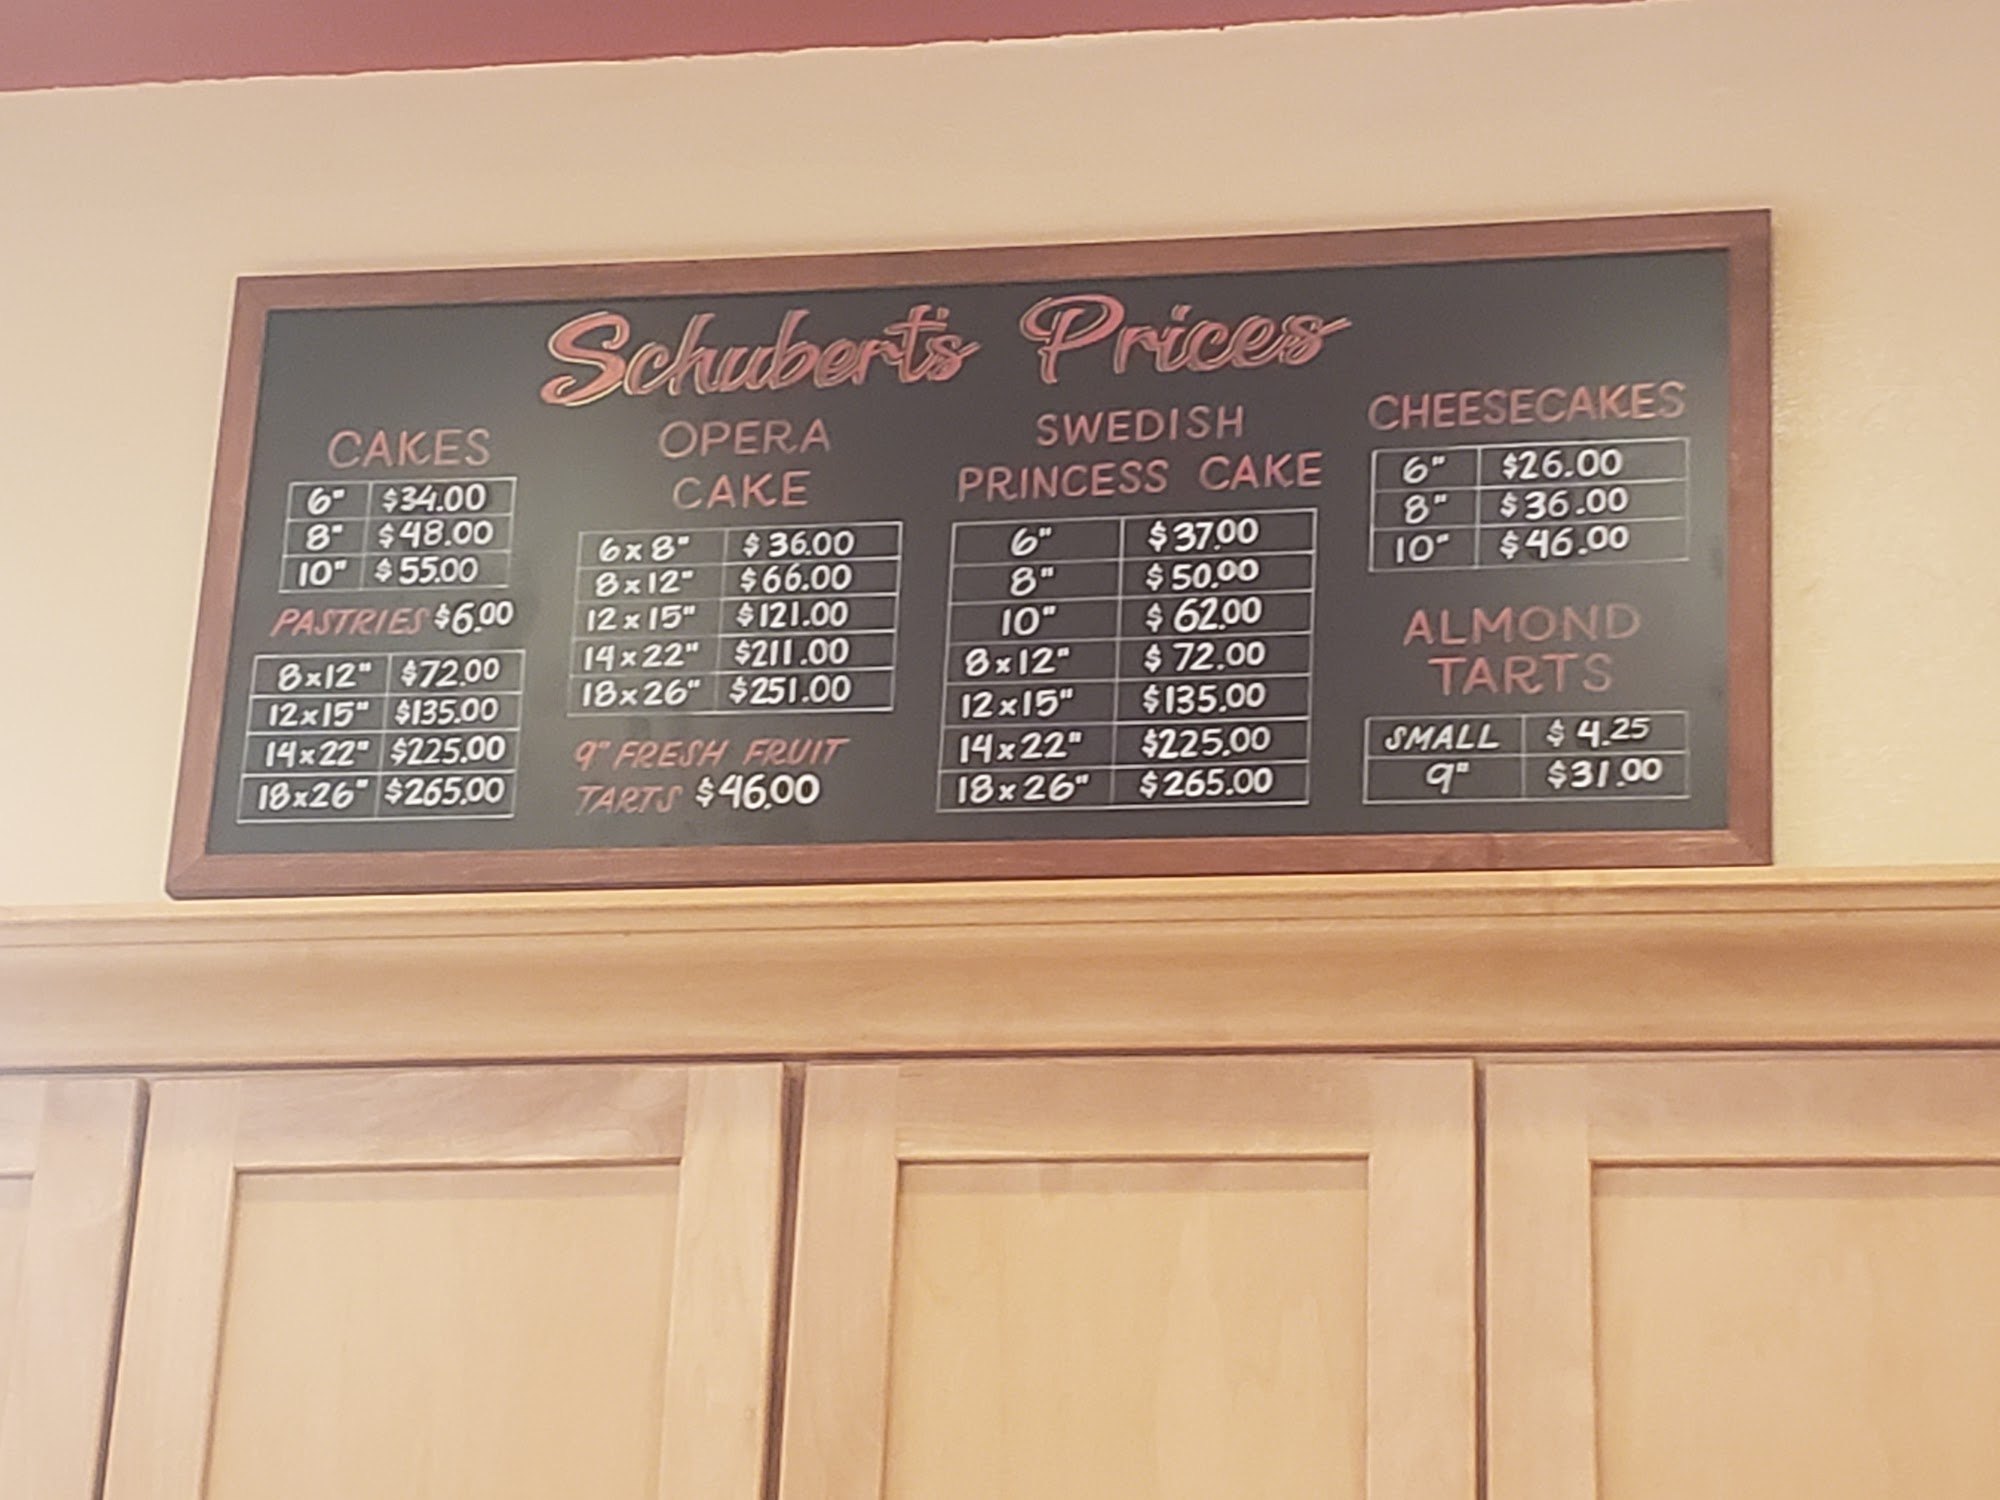 Schubert's Prices
CAKES
6" $34.00
8" $48.00
10" $55.00
PASTRIES $6.00
8x12" $72.00
12x15" $135.00
14x22" $225.00
18x26" $265.00
OPERA
CAKE
6x8" $36.00
8x12" $66.00
12x15" $121.00
14x22" $211.00
18x26" $251.00
9" FRESH FRUIT
TARTS $46.00
SWEDISH
PRINCESS CAKE
6" $37.00
8" $50.00
10" $62.00
8x12" $72.00
12x15" $135.00
14x22" $225.00
18x26" $265.00
CHEESECAKES
6" $26.00
8" $36.00
10" $46.00
ALMOND
TARTS
SMALL $4.25
9" $31.00